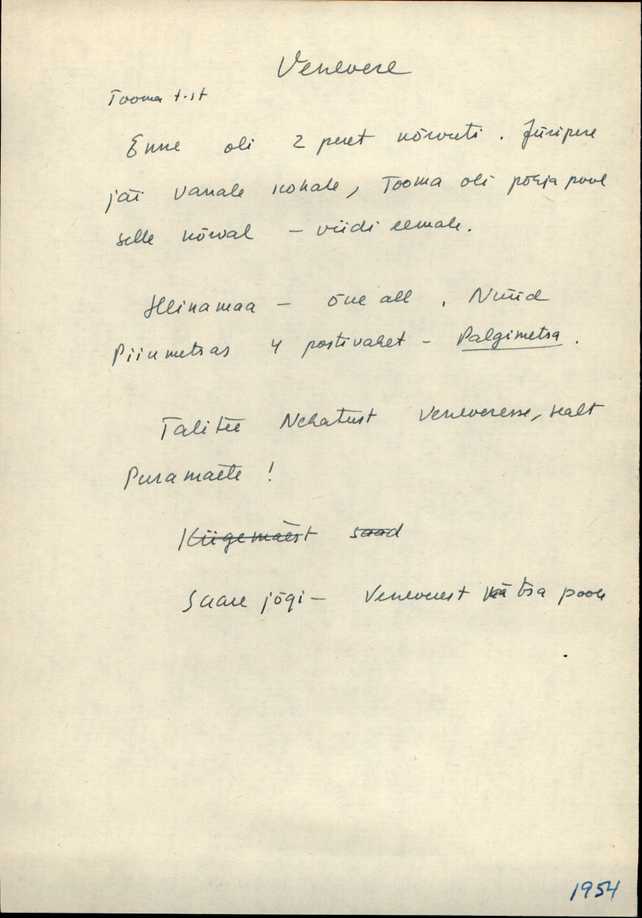 Venevere
Tooma t-st
Enne oli 2 peret kõrvuti. Jüripere
jäi vanale kohale, Tooma oli põhja pool
selle kõrval – viidi eemale.
Heinamaa – õue all. Nüüd
Piinmetsas 4 postivahet – Palgimetsa.
Talitee Nehatust Veneveresse, sealt
Puramäele!
Kiigemäest saad
Saare jõgi – Veneverest tsa poole
1954